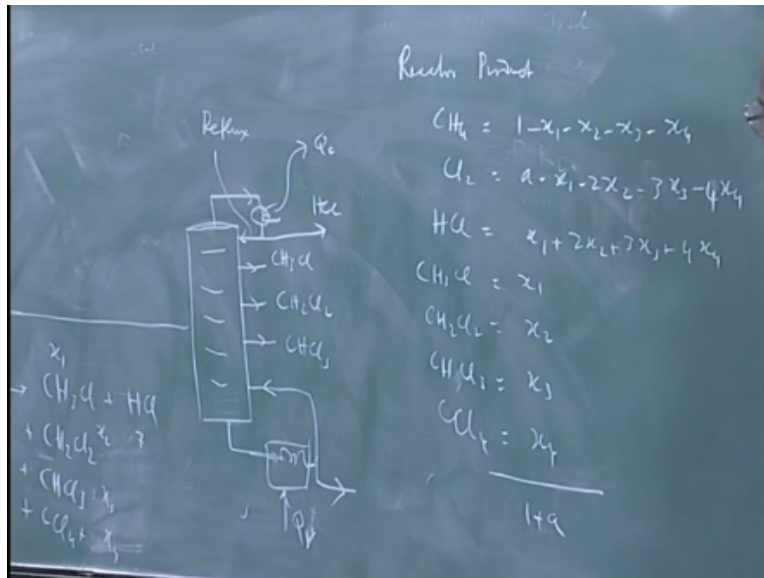 Reactor Product
CH₄ = 1-x₁-x₂-x₃-x₄
Cl₂ = a-x₁-2x₂-3x₃-4x₄
HCl = x₁+2x₂+3x₃+4x₄
CH₃Cl = x₁
CH₂Cl₂ = x₂
CHCl₃ = x₃
CCl₄ = x₄
1+a
Reflux
Qc
HCl
CH₃Cl
CH₂Cl₂
CHCl₃
x₁
→ CH₃Cl + HCl
+ CH₂Cl₂ x₂
+ CHCl₃ x₃
+ CCl₄